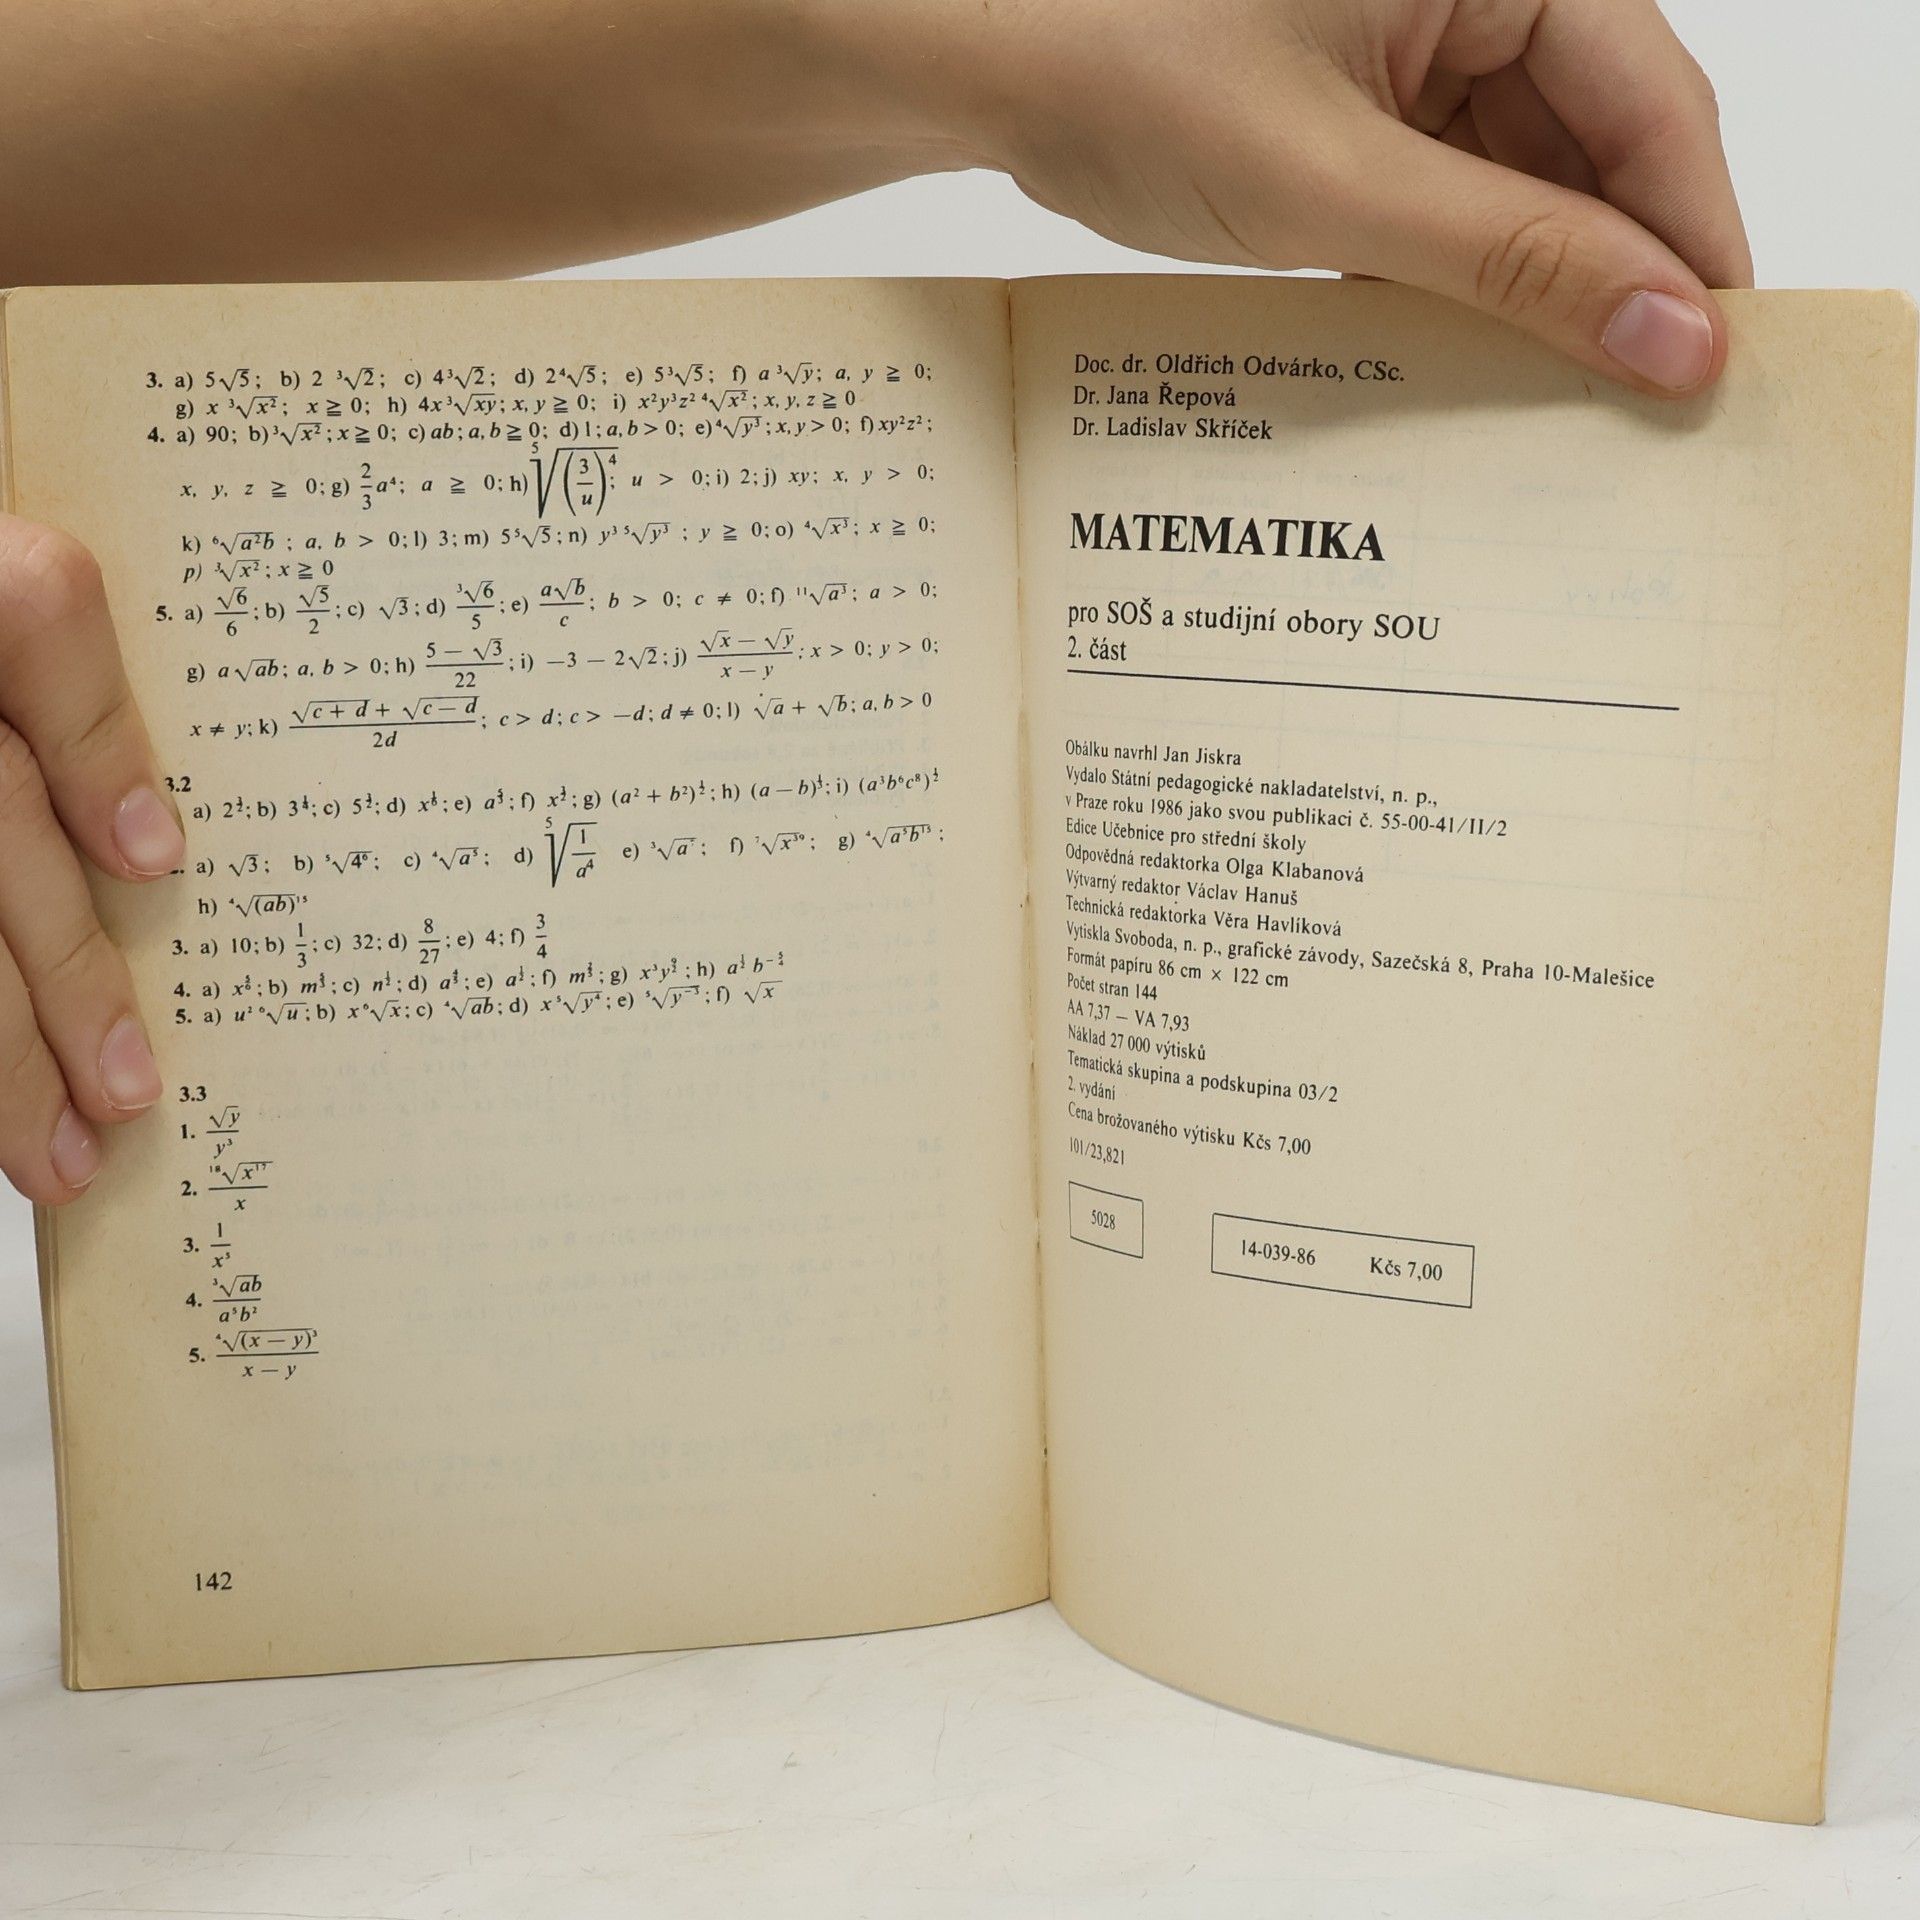 3. a) 5√5; b) 2 ³√2; c) 4³√2; d) 2⁴√5; e) 5³√5; f) a ³√y; a, y ≧ 0;
g) x ³√x²; x ≧ 0; h) 4x³√xy; x, y ≧ 0; i) x²y³z² ⁴√x²; x, y, z ≧ 0
4. a) 90; b) ³√x²; x ≧ 0; c) ab; a, b ≧ 0; d) 1; a, b > 0; e) ⁴√y³; x, y > 0; f) xy²z²;
x, y, z ≧ 0; g) 2/3 a⁴; a ≧ 0; h) ⁵√(3/u)⁴; u > 0; i) 2; j) xy; x, y > 0;
k) ⁶√a²b ; a, b > 0; l) 3; m) 5⁵√5; n) y³ ⁵√y³ ; y ≧ 0; o) ⁴√x³; x ≧ 0;
p) ³√x²; x ≧ 0
5. a) √6/6; b) √5/2; c) √3; d) ³√6/5; e) a√b/c; b > 0; c ≠ 0; f) ¹¹√a³; a > 0;
g) a√ab; a, b > 0; h) (5 − √3)/22; i) −3 − 2√2; j) (√x − √y)/(x − y); x > 0; y > 0;
x ≠ y; k) (√(c + d) + √(c − d))/2d; c > d; c > −d; d ≠ 0; l) √a + √b; a, b > 0
3.2
a) b) c) d) e) f) g) h) i)
a) √3; b) ⁵√4⁶; c) ⁴√a⁵; d) ⁵√(1/a⁴) e) f) ⁷√x³⁹; g) ⁴√a⁵b¹⁵;
h) ⁴√(ab)¹⁵
3. a) 10; b) 1/3; c) 32; d) 8/27; e) 4; f) 3/4
4. a) b) c) d) e) f) g) h)
5. a) u² ⁶√u; b) x⁶√x; c) ⁴√ab; d) x⁵√y⁴; e) ⁵√y⁻³; f) √x
3.3
1. √y/y³
2. ¹⁸√x¹⁷/x
3. 1/x⁵
4. ³√ab/a⁵b²
5. ⁴√(x − y)³/(x − y)
142
Doc. dr. Oldřich Odvárko, CSc.
Dr. Jana Řepová
Dr. Ladislav Skříček
MATEMATIKA
pro SOŠ a studijní obory SOU
2. část
Obálku navrhl Jan Jiskra
Vydalo Státní pedagogické nakladatelství, n. p.,
v Praze roku 1986 jako svou publikaci č. 55-00-41/II/2
Edice Učebnice pro střední školy
Odpovědná redaktorka Olga Klabanová
Výtvarný redaktor Václav Hanuš
Technická redaktorka Věra Havlíková
Vytiskla Svoboda, n. p., grafické závody, Sazečská 8, Praha 10-Malešice
Formát papíru 86 cm × 122 cm
Počet stran 144
AA 7,37 — VA 7,93
Náklad 27 000 výtisků
Tematická skupina a podskupina 03/2
2. vydání
Cena brožovaného výtisku Kčs 7,00
101/23,821
5028
14-039-86 Kčs 7,00